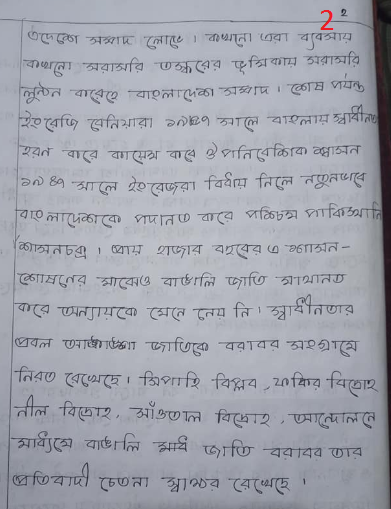 2 2
এদেশে সম্পদ লোভে। কখনো এরা ব্যবসায়
কখনো সরাসরি তস্করের ভূমিকায় সরাসরি
লুন্ঠন করেছে বাংলাদেশ সম্পদ। শেষ পর্যন্ত
ইংরেজি বেনিয়ারা ১৭৫৭ সালে বাংলায় স্বাধীনতা
হরন করে কায়েম করে ঔপনিবেশিক শাসন
১৯৪৭ সালে ইংরেজরা বিদায় নিলে নতুনভাবে
বাংলাদেশকে পদানত করে পশ্চিম পাকিস্তানি
শাসনচক্র। প্রায় হাজার বছরের এ শাসন-
শোষনের মাঝেও বাঙালি জাতি মাথানত
করে অন্যায়কে মেনে নেয় নি। স্বাধীনতার
প্রবল আকাঙ্ক্ষা জাতিকে বরাবর সংগ্রামে
নিরত রেখেছে। সিপাহি বিপ্লব, ফকির বিদ্রোহ
নীল বিদ্রোহ, সাঁওতাল বিদ্রোহ, আন্দোলনে
মাধ্যমে বাঙালি জাতি বরাবর তার
প্রতিবাদী চেতনা স্বাক্ষর রেখেছে।